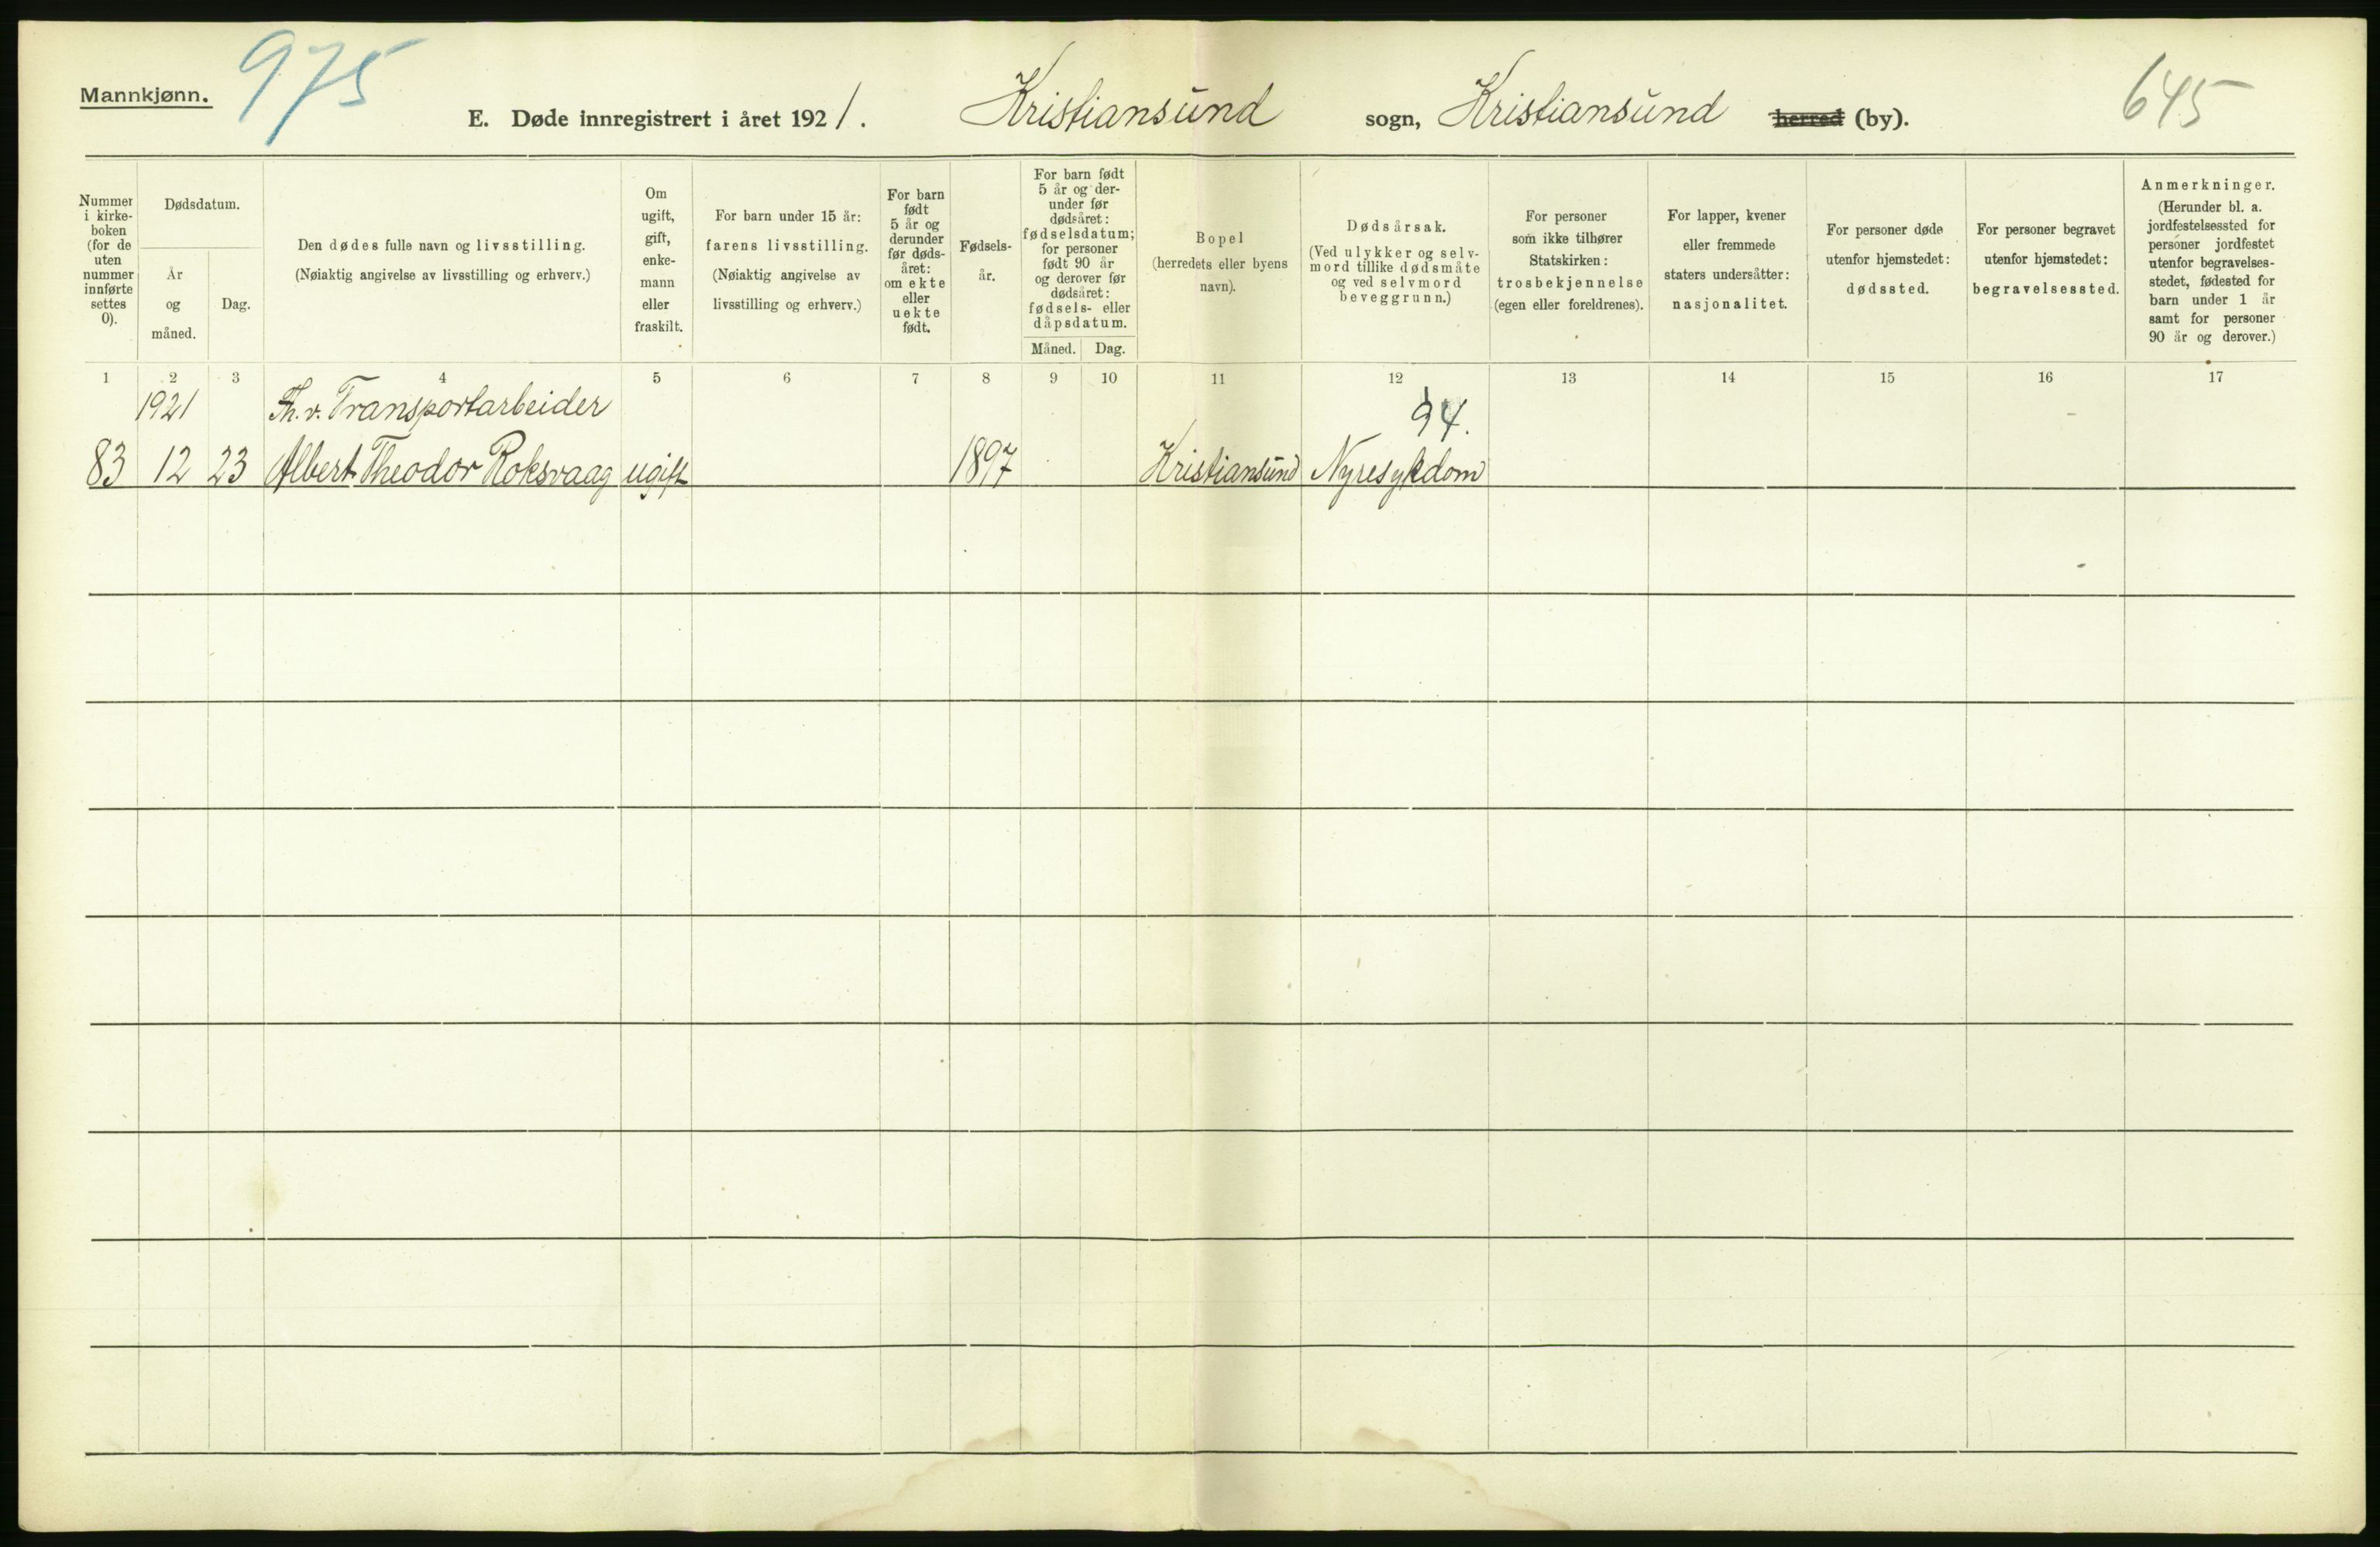 Mannkjønn.
975
E. Døde innregistrert i året 1921.
Kristiansund sogn, Kristiansund herred (by).
645
Nummer
i kirke-
boken
(for de
uten
nummer
innførte
settes
0).
Dødsdatum.
År
og
måned.
Dag.
Den dødes fulle navn og livsstilling.
(Nøiaktig angivelse av livsstilling og erhverv.)
Om
ugift,
gift,
enke-
mann
eller
fraskilt.
For barn under 15 år:
farens livsstilling.
(Nøiaktig angivelse av
livsstilling og erhverv.)
For barn
født
5 år og
derunder
før døds-
året:
om ekte
eller
uekte
født.
Fødsels-
år.
For barn født
5 år og der-
under før
dødsåret:
fødselsdatum;
for personer
født 90 år
og derover før
dødsåret:
fødsels- eller
dåpsdatum.
Måned. Dag.
Bopel
(herredets eller byens
navn).
Dødsårsak.
(Ved ulykker og selv-
mord tillike dødsmåte
og ved selvmord
beveggrunn.)
For personer
som ikke tilhører
Statskirken:
trosbekjennelse
(egen eller foreldrenes).
For lapper, kvener
eller fremmede
staters undersåtter:
nasjonalitet.
For personer døde
utenfor hjemstedet:
dødssted.
For personer begravet
utenfor hjemstedet:
begravelsessted.
Anmerkninger.
(Herunder bl. a.
jordfestelsessted for
personer jordfestet
utenfor begravelses-
stedet, fødested for
barn under 1 år
samt for personer
90 år og derover.)
1 2 3 4 5 6 7 8 9 10 11 12 13 14 15 16 17
1921 Th. v. Transportarbeider 94.
83 12 23 Albert Theodor Roksvaag ugift 1897 Kristiansund Nyresykdom